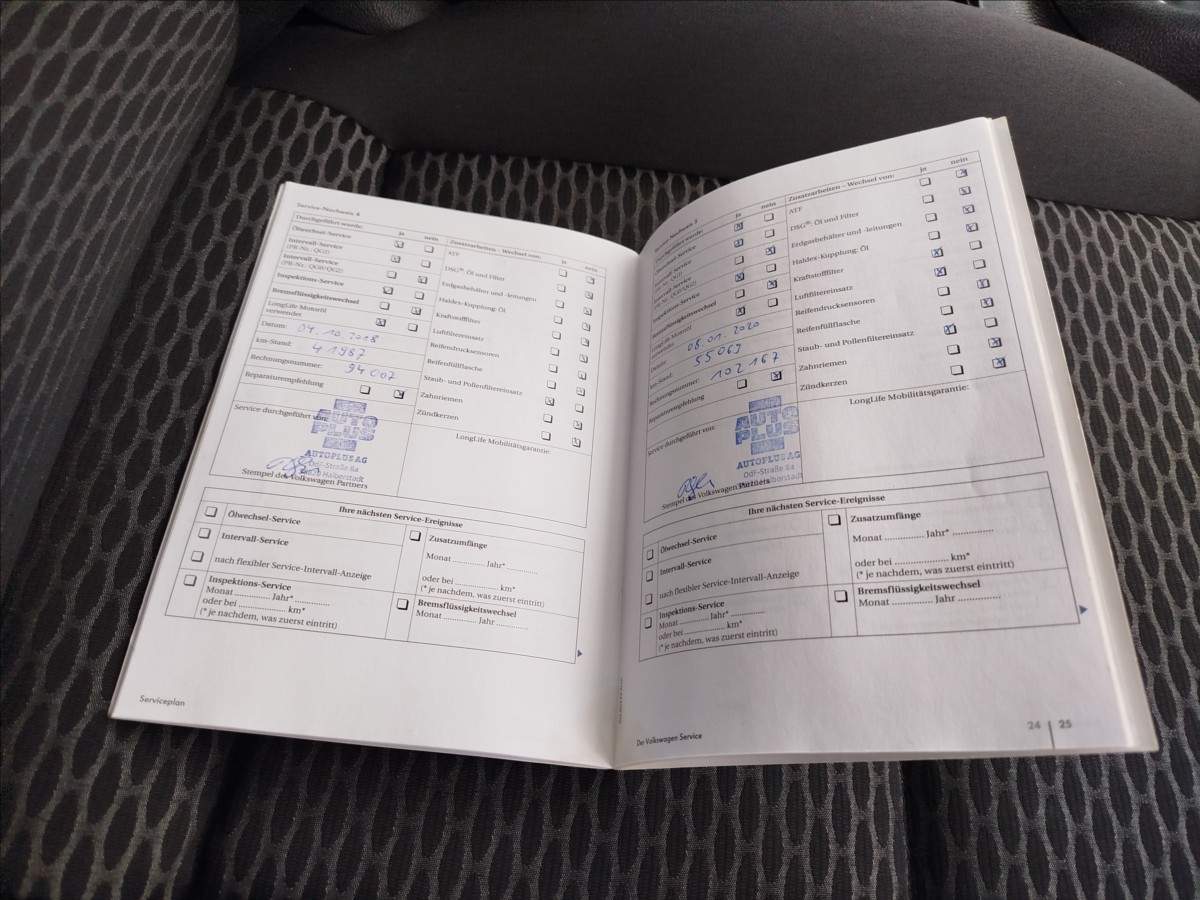 Service-Nachweis 4
Durchgeführt wurde: ja nein
Ölwechsel-Service
Intervall-Service
(PR-Nr.: QG1)
Intervall-Service
(PR-Nr.: QG0/QG2)
Inspektions-Service
Bremsflüssigkeitswechsel
LongLife Motoröl
verwendet
Datum: 04.10.2018
km-Stand: 41987
Rechnungsnummer: 94007
Reparaturempfehlung
Service durchgeführt von:
AUTO
PLUS
AUTOPLUS AG
OdF-Straße 8a
Halberstadt
Stempel des Volkswagen Partners
Zusatzarbeiten – Wechsel von: ja nein
ATF
DSG®: Öl und Filter
Erdgasbehälter und -leitungen
Haldex-Kupplung: Öl
Kraftstofffilter
Luftfiltereinsatz
Reifendrucksensoren
Reifenfüllflasche
Staub- und Pollenfiltereinsatz
Zahnriemen
Zündkerzen
LongLife Mobilitätsgarantie:
Ihre nächsten Service-Ereignisse
Ölwechsel-Service
Intervall-Service
nach flexibler Service-Intervall-Anzeige
Inspektions-Service
Monat ............. Jahr* .............
oder bei ................ km*
(* je nachdem, was zuerst eintritt)
Zusatzumfänge
Monat ............. Jahr* .............
oder bei ................ km*
(* je nachdem, was zuerst eintritt)
Bremsflüssigkeitswechsel
Monat ............. Jahr .............
Serviceplan
Service-Nachweis 5
Durchgeführt wurde: ja nein
Ölwechsel-Service
Intervall-Service
(PR-Nr.: QG1)
Intervall-Service
(PR-Nr.: QG0/QG2)
Inspektions-Service
Bremsflüssigkeitswechsel
LongLife Motoröl
verwendet
Datum: 08.01.2020
km-Stand: 55069
Rechnungsnummer: 102167
Reparaturempfehlung
Service durchgeführt von:
AUTO
PLUS
AUTOPLUS AG
OdF-Straße 8a
Halberstadt
Stempel des Volkswagen Partners
Zusatzarbeiten – Wechsel von: ja nein
ATF
DSG®: Öl und Filter
Erdgasbehälter und -leitungen
Haldex-Kupplung: Öl
Kraftstofffilter
Luftfiltereinsatz
Reifendrucksensoren
Reifenfüllflasche
Staub- und Pollenfiltereinsatz
Zahnriemen
Zündkerzen
LongLife Mobilitätsgarantie:
Ihre nächsten Service-Ereignisse
Ölwechsel-Service
Intervall-Service
nach flexibler Service-Intervall-Anzeige
Inspektions-Service
Monat ............. Jahr* .............
oder bei ................ km*
(* je nachdem, was zuerst eintritt)
Zusatzumfänge
Monat ............. Jahr* .............
oder bei ................ km*
(* je nachdem, was zuerst eintritt)
Bremsflüssigkeitswechsel
Monat ............. Jahr .............
Der Volkswagen Service
24 | 25